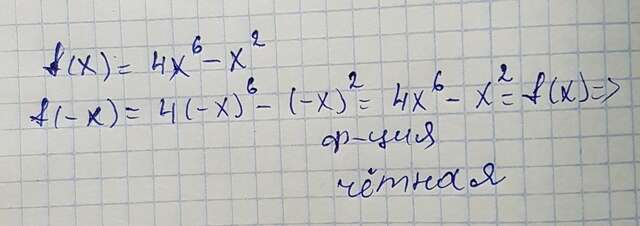 f(x) = 4x⁶ - x²
f(-x) = 4(-x)⁶ - (-x)² = 4x⁶ - x² = f(x) =>
ф-ция
чётная